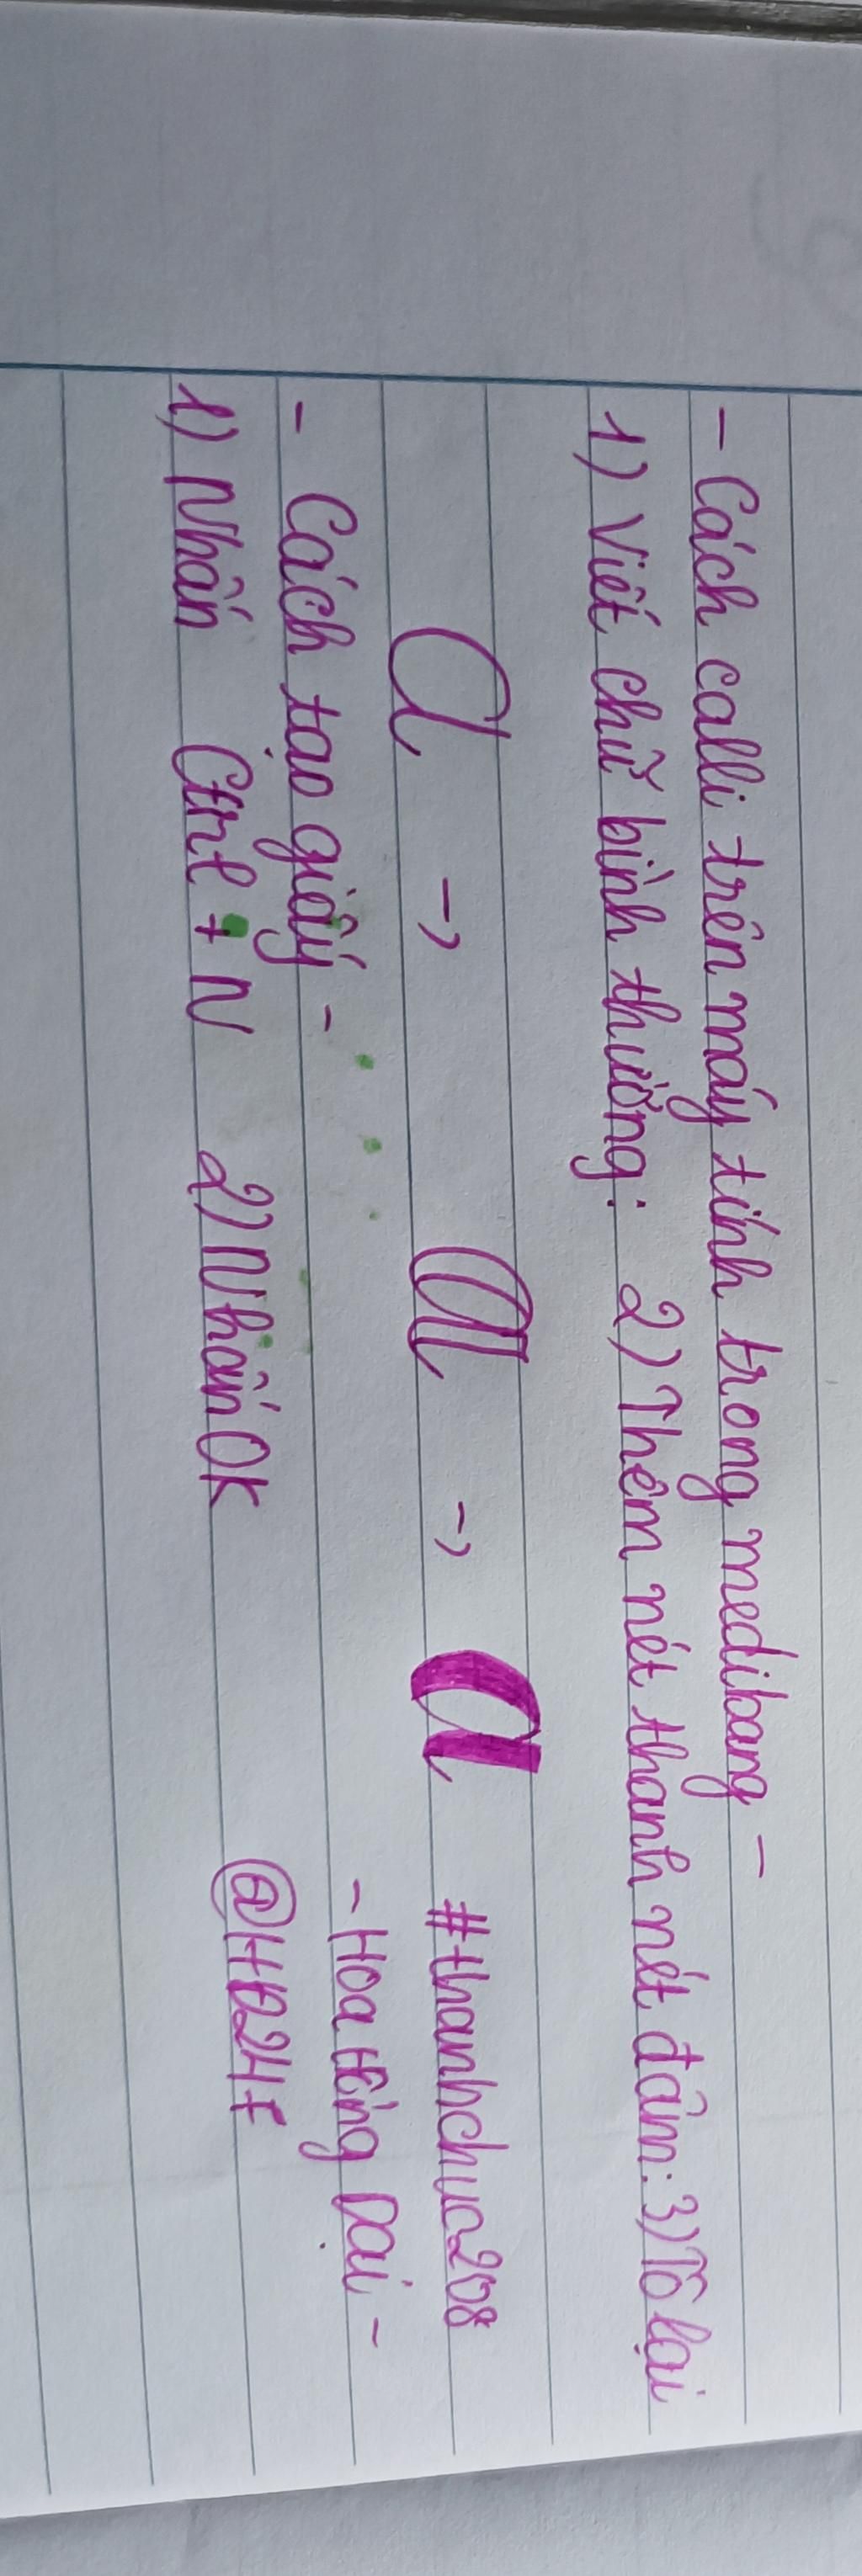 - Cách calli trên máy tính trong medibang -
1) Viết chữ bình thường: 2) Thêm nét thanh nét đâm: 3) Tô lại
a -> a -> a #thanhchuc208
- Cách tạo giấy - - Hoa Hồng Dại -
1) Nhấn Ctrl + N 2) Nhấn OK @HĐ2H